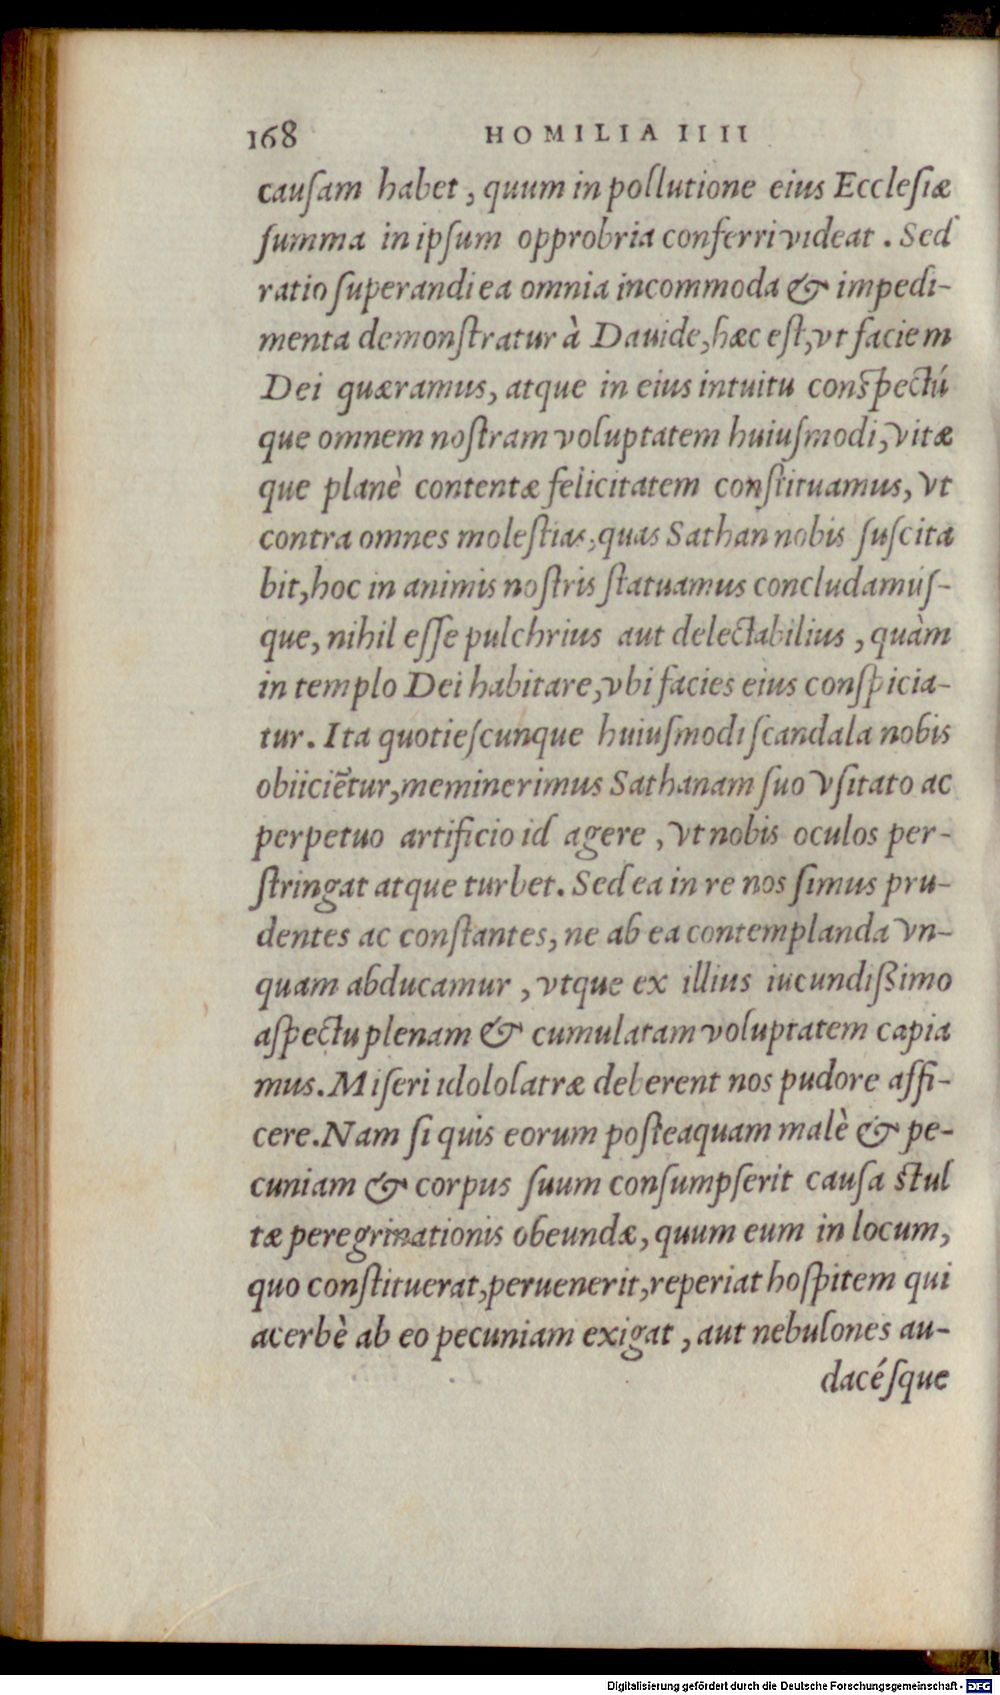 168 HOMILIA IIII
cauſam habet, quum in pollutione eius Eccleſiæ
ſumma in ipſum opprobria conferri videat. Sed
ratio ſuperandi ea omnia incommoda & impedi-
menta demonſtratur à Dauide, hæc eſt, vt faciem
Dei quæramus, atque in eius intuitu conſpectú
que omnem noſtram voluptatem huiuſmodi, vitæ
que planè contentæ felicitatem conſtituamus, vt
contra omnes moleſtias, quas Sathan nobis ſuſcita
bit, hoc in animis noſtris ſtatuamus concludamúſ-
que, nihil eſſe pulchrius aut delectabilius, quàm
in templo Dei habitare, vbi facies eius conſpicia-
tur. Ita quotieſcunque huiuſmodi ſcandala nobis
obiiciētur, meminerimus Sathanam ſuo vſitato ac
perpetuo artificio id agere, vt nobis oculos per-
ſtringat atque turbet. Sed ea in re nos ſimus pru-
dentes ac conſtantes, ne ab ea contemplanda vn-
quam abducamur, vtque ex illius iucundißimo
aſpectu plenam & cumulatam voluptatem capia
mus. Miſeri idololatræ deberent nos pudore affi-
cere. Nam ſi quis eorum poſteaquam malè & pe-
cuniam & corpus ſuum conſumpſerit cauſa ſtul
tæ peregrinationis obeundæ, quum eum in locum,
quo conſtituerat, peruenerit, reperiat hoſpitem qui
acerbè ab eo pecuniam exigat, aut nebulones au-
dacéſque
Digitalisierung gefördert durch die Deutsche Forschungsgemeinschaft - DFG